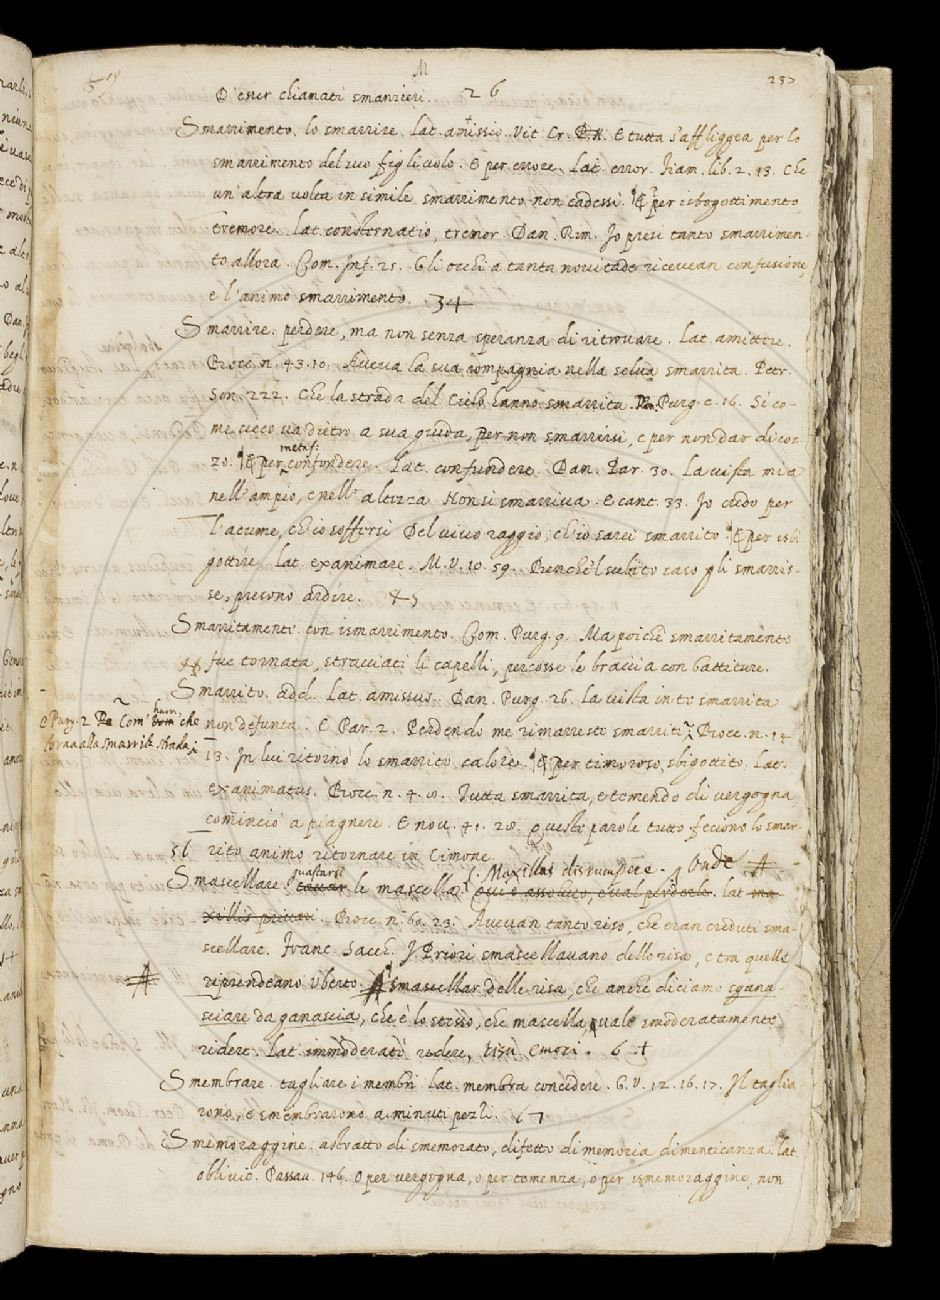 M
237
D'esser chamati smanzieri. 26
Smarrimento. lo smarrire. Lat. amissio. Vit. Cr. E tutta s'affliggea per lo
smarrimento del suo figliuolo. E per errore. Lat. error. Fiam. lib. 2. 13. Che
un'altra volta in simile smarrimento non cadessi. E per isbogottimento
tremore. Lat. consternatio, tremor. Dan. Rim. Io presi tanto smarrimen-
to allora. Com. Inf. 25. Gli occhi a tanta novitade ricevean confusione
e l'animo smarrimento. 34
Smarrire. perdere, ma non senza speranza di ritrovare. Lat. amittere.
Bocc. n. 43. 10. Aveva la sua compagnia nella selva smarrita. Petr.
Son. 222. Che la strada del Cielo hanno smarrita. Purg. c. 16. Sì co-
me cieco va dietro a sua guida, per non smarrirsi, e per non dar di coz-
zo. E per metaf: confondere. Lat. confundere. Dan. Par. 30. La vista mia
nell'ampio, e nell'altezza Non si smarriva. E cant. 33. Io credo per
l'acume, ch'io soffersi Del vivo raggio, ch'io sarei smarrito. E per isbi
gottire. Lat. exanimare. M. V. 10. 59. Benche 'l subito caso gli smarris-
se, presono ardire. 45
Smarritamente. con ismarrimento. Com. Purg. 9. Ma poichè smarritamente
fue tornata, stracciati li capelli, percosse le braccia con battiture.
Smarrito. add. Lat. amissus. Dan. Purg. 26. La vista in te smarrita
non defunta. E Par. 2. Perdendo me rimarresti smarriti. Bocc. n. 14
e Purg. 2 Com' huom che
torna alla smarrita strada
13. In lui ritornò lo smarrito calore. E per timoroso, sbigottito. Lat.
exanimatus. Bocc. n. 4. 10. Tutta smarrita, e temendo di vergogna
cominciò a piagnere. E nov. 41. 28. Queste parole tutto feciono lo smar-
56 rito animo ritornare in Cimone.
Smascellare. guastarsi le mascella. Maxillas disrumpere. Onde lat
Bocc. n. 60. 23. Avevan tanto riso, che eran creduti sma-
scellare. Franc. Sacch. I Priori smascellavano delle risa, e tra quelle
riprendeano Uberto. smascellar delle risa, che anche diciamo sgana-
sciare da ganascia, che è lo stesso, che mascella, vale smoderatamente
ridere. Lat. immoderatè ridere, risu emori. 64
Smembrare. tagliare i membri. Lat. membra concidere. G. V. 12. 16. 17. Il taglia-
rono, e smembrarono a minuti pezzi. 67
Smemoraggine. astratto di smemorato, difetto di memoria dimenticanza. lat.
oblivio. Passav. 146. O per vergogna, o per temenza, o per ismemoraggine, non